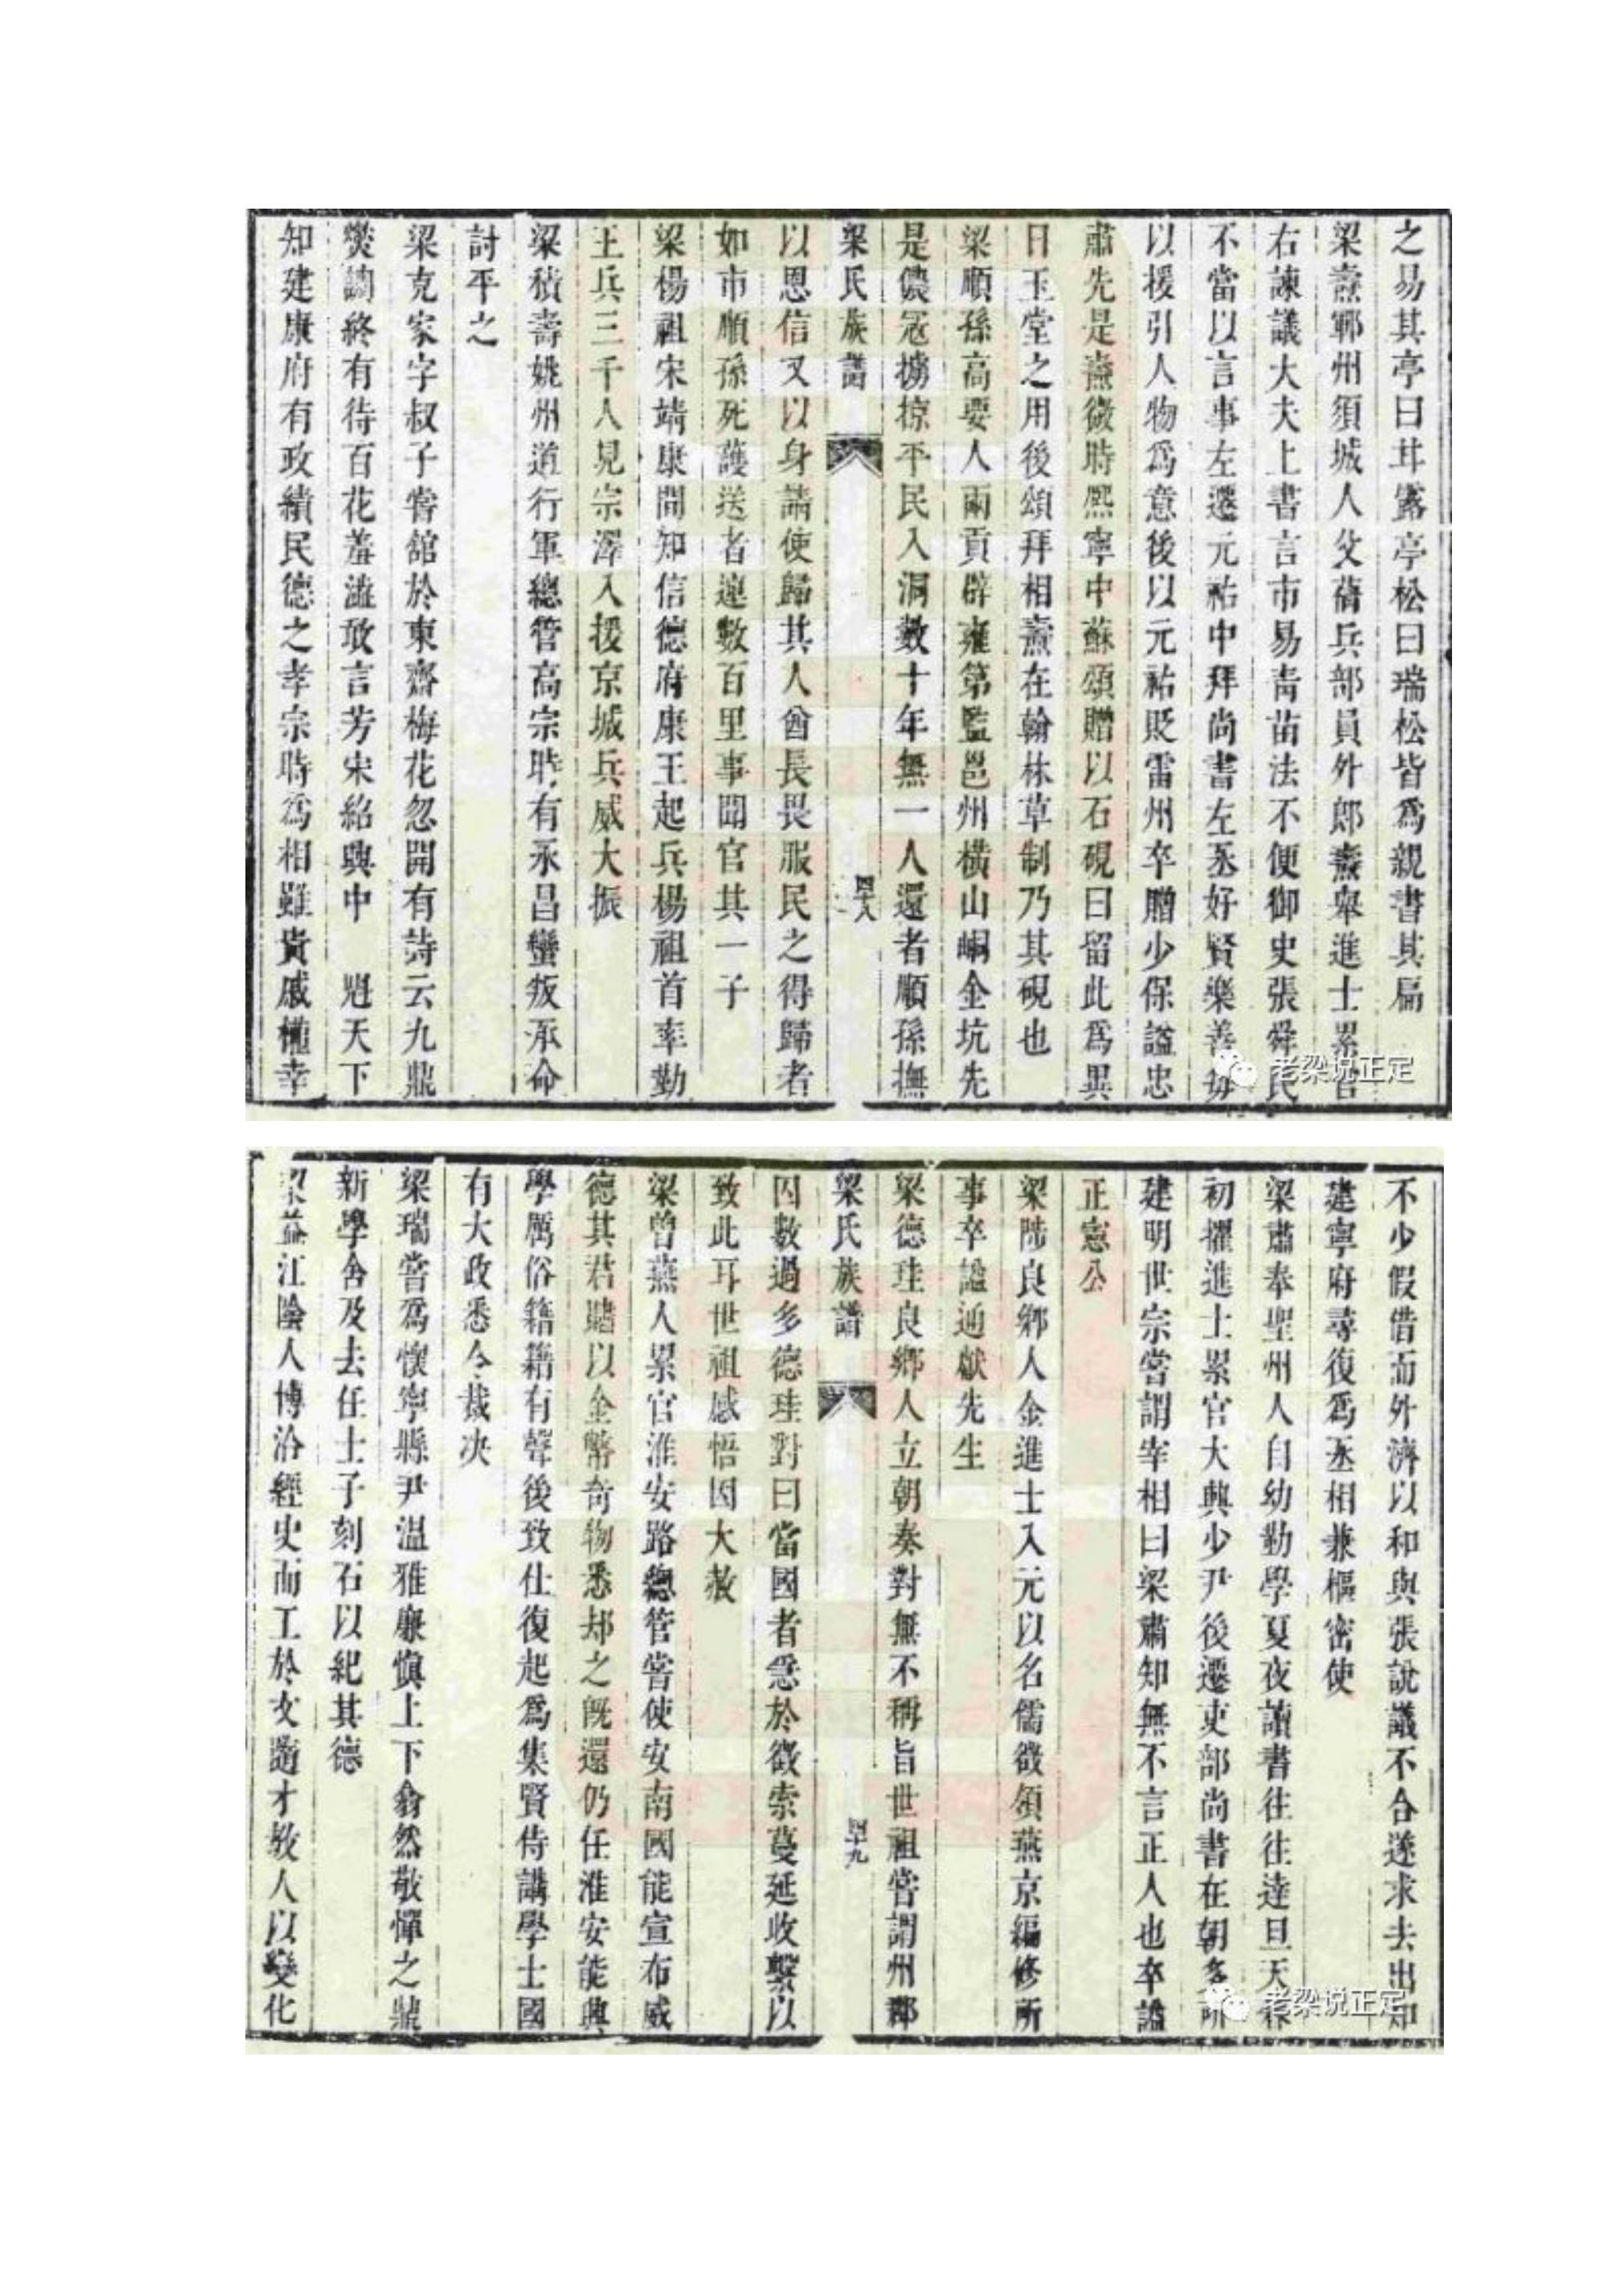 之易其亭曰甘露亭松曰瑞松皆爲親書其扁
梁燾鄆州須城人父蒨兵部員外郎燾舉進士累官
右諫議大夫上書言市易靑苗法不便御史張舜民
不當以言事左遷元祐中拜尚書左丞好賢樂善毎
以援引人物爲意後以元祐貶雷州卒贈少保謚忠
肅先是燾微時熙寧中蘇頌贈以石硯曰留此爲異
日玉堂之用後頌拜相燾在翰林草制乃其硯也
梁順孫高要人兩貢辟雍第監邕州橫山峒金坑先
是儂冦擄掠平民入洞數十年無一人還者順孫撫
梁氏族譜
四十八
以恩信又以身請使歸其人酋長畏服民之得歸者
如市順孫死護送者連數百里事聞官其一子
梁楊祖宋靖康間知信德府康王起兵楊祖首率勤
王兵三千人見宗澤入援京城兵威大振
梁積壽姚州道行軍總管高宗時有永昌蠻叛承命
討平之
梁克家字叔子嘗舘於東齋梅花忽開有詩云九鼎
燮調終有待百花羞澁敢言芳宋紹興中 魁天下
知建康府有政績民德之孝宗時爲相雖貴戚權幸
不少假借而外濟以和與張說議不合遂求去出知
建寧府尋復爲丞相兼樞密使
梁肅奉聖州人自幼勤學夏夜讀書往往達旦天眷
初擢進士累官大興少尹後遷吏部尚書在朝多所
建明世宗嘗謂宰相曰梁肅知無不言正人也卒謚
正憲公
梁陟良鄉人金進士入元以名儒徵領燕京編修所
事卒謚通獻先生
梁德珪良鄉人立朝奏對無不稱旨世祖嘗謂州郡
梁氏族譜
四十九
囚數過多德珪對曰當國者急於徵索蔓延收繫以
致此耳世祖感悟因大赦
梁曾燕人累官淮安路總管嘗使安南國能宣布威
德其君賂以金幣奇物悉却之旣還仍任淮安能興
學厲俗籍籍有聲後致仕復起爲集賢侍講學士國
有大政悉令裁决
梁瑞嘗爲懷寧縣尹温雅廉愼上下翕然敬憚之鼎
新學舍及去任士子刻石以紀其德
梁益江陰人博洽經史而工於文遒才敎人以變化
老梁说正定
老梁说正定